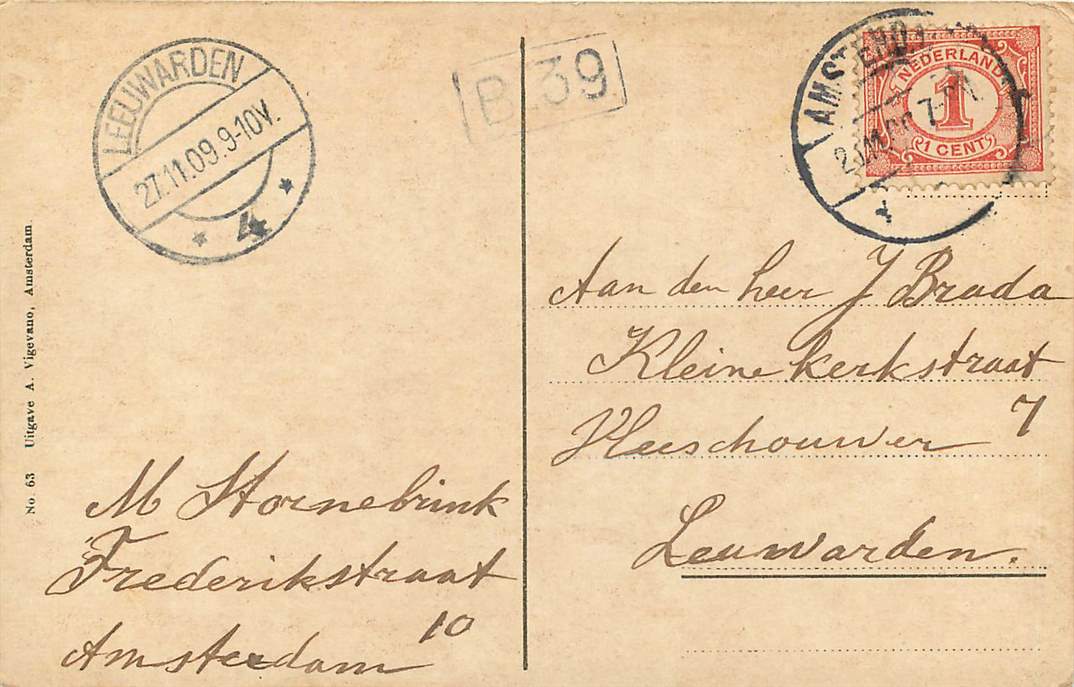 LEEUWARDEN
27.11.09.9-10V.
4
B 39
AMSTERDA
7-
NEDERLAND
1
1 CENT
Aan den heer J Brada
Kleine kerkstraat
7
Vleeschouwer
Leeuwarden.
M Hornebrink
Frederikstraat
10
Amsterdam
No. 63 Uitgave A. Vigevano, Amsterdam